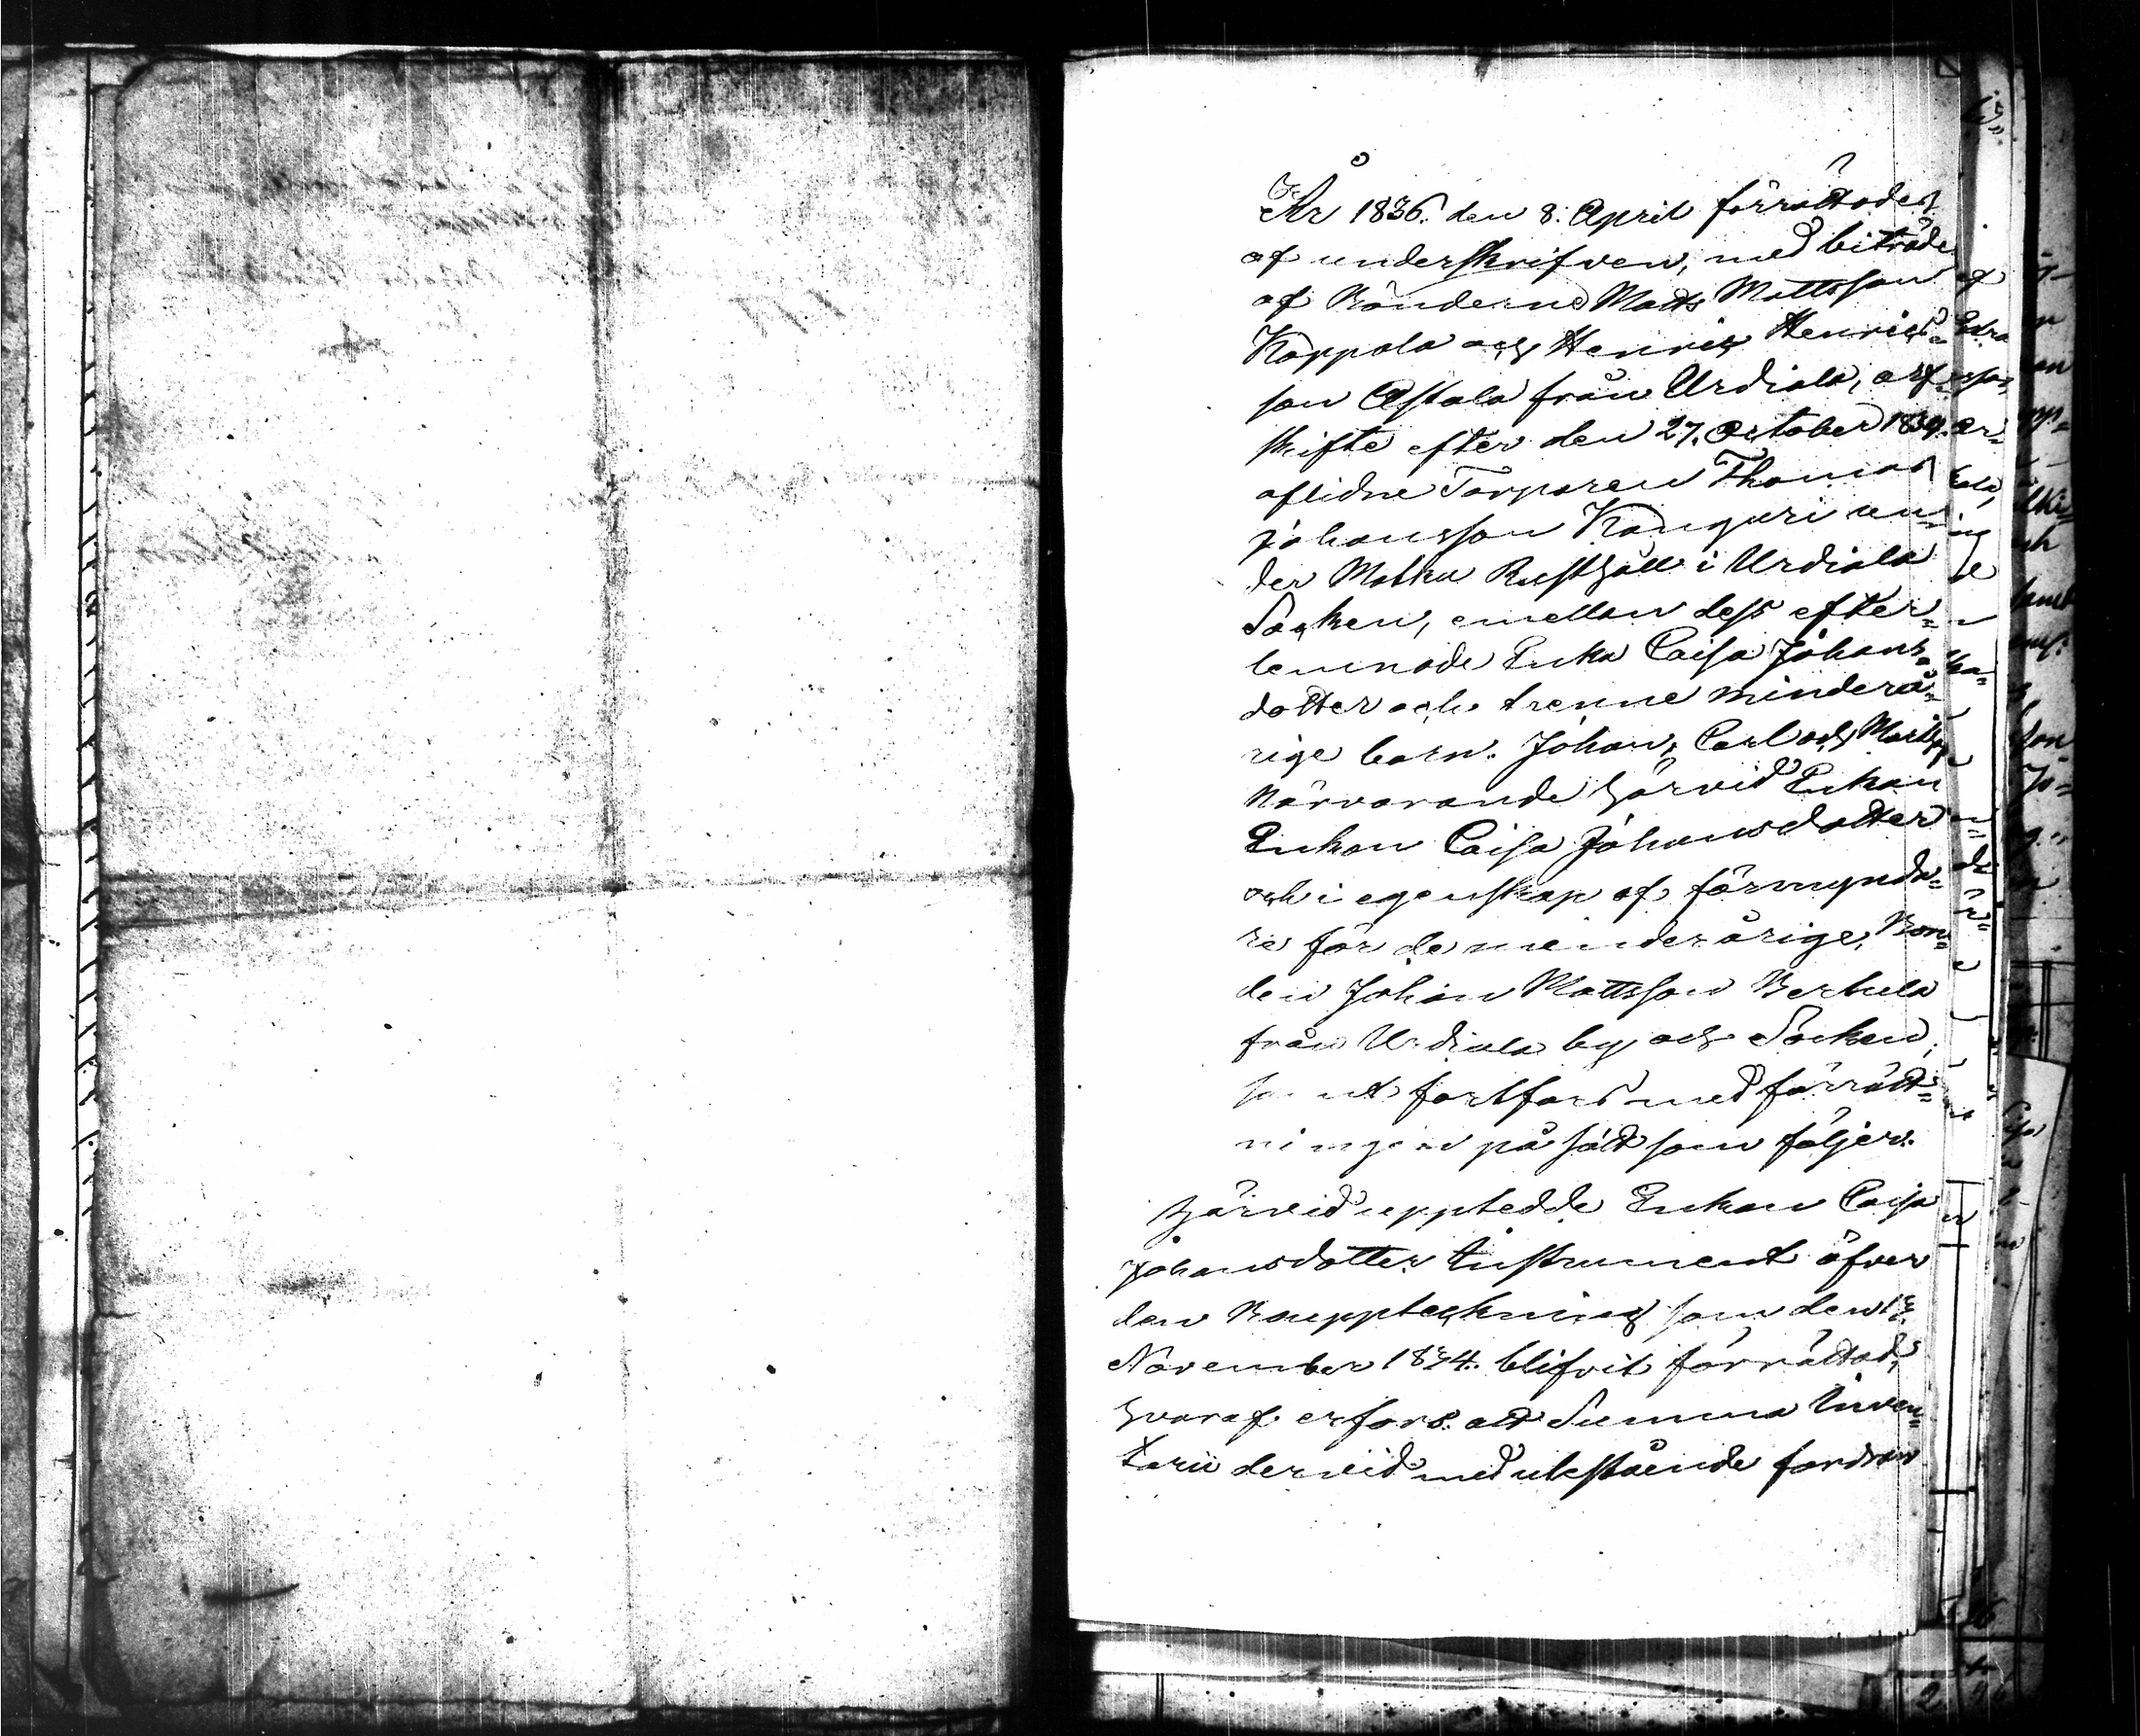 År 1836. den 8. April förrättades
af underskrifven, med biträde
af Bönderne Matts Mattsson
Kappola och Henric Henrics=
son Astala från Urdiala, arf=
skifte efter den 27. October
aflidne Torparen Thomas
Johansson Kanguri un=
der Matku Rusthåll i Urdiala
Socken, emellan dess efter=
lemnade Enka Caisa Johans=
dotter och trenne minderå=
rige barn. Johan, Carl och
Närvarande härvid Enkan
Enkan Caisa Johansdotter
och i egenskap af förmynda=
re för de minderårige, Bon=
den Johan Mattsson Bertula
från Urdiala by och Socken,
samt fortfors med förrätt=
ningen på sätt som följer.
Härvid upptedde Enkan Caisa
Johansdotter Instrument öfver
den Bouppteckning som den
November 1834. blifvit förrättad,
hvaraf erfors att Summa Inven=
tarii dervid med utestående fordran